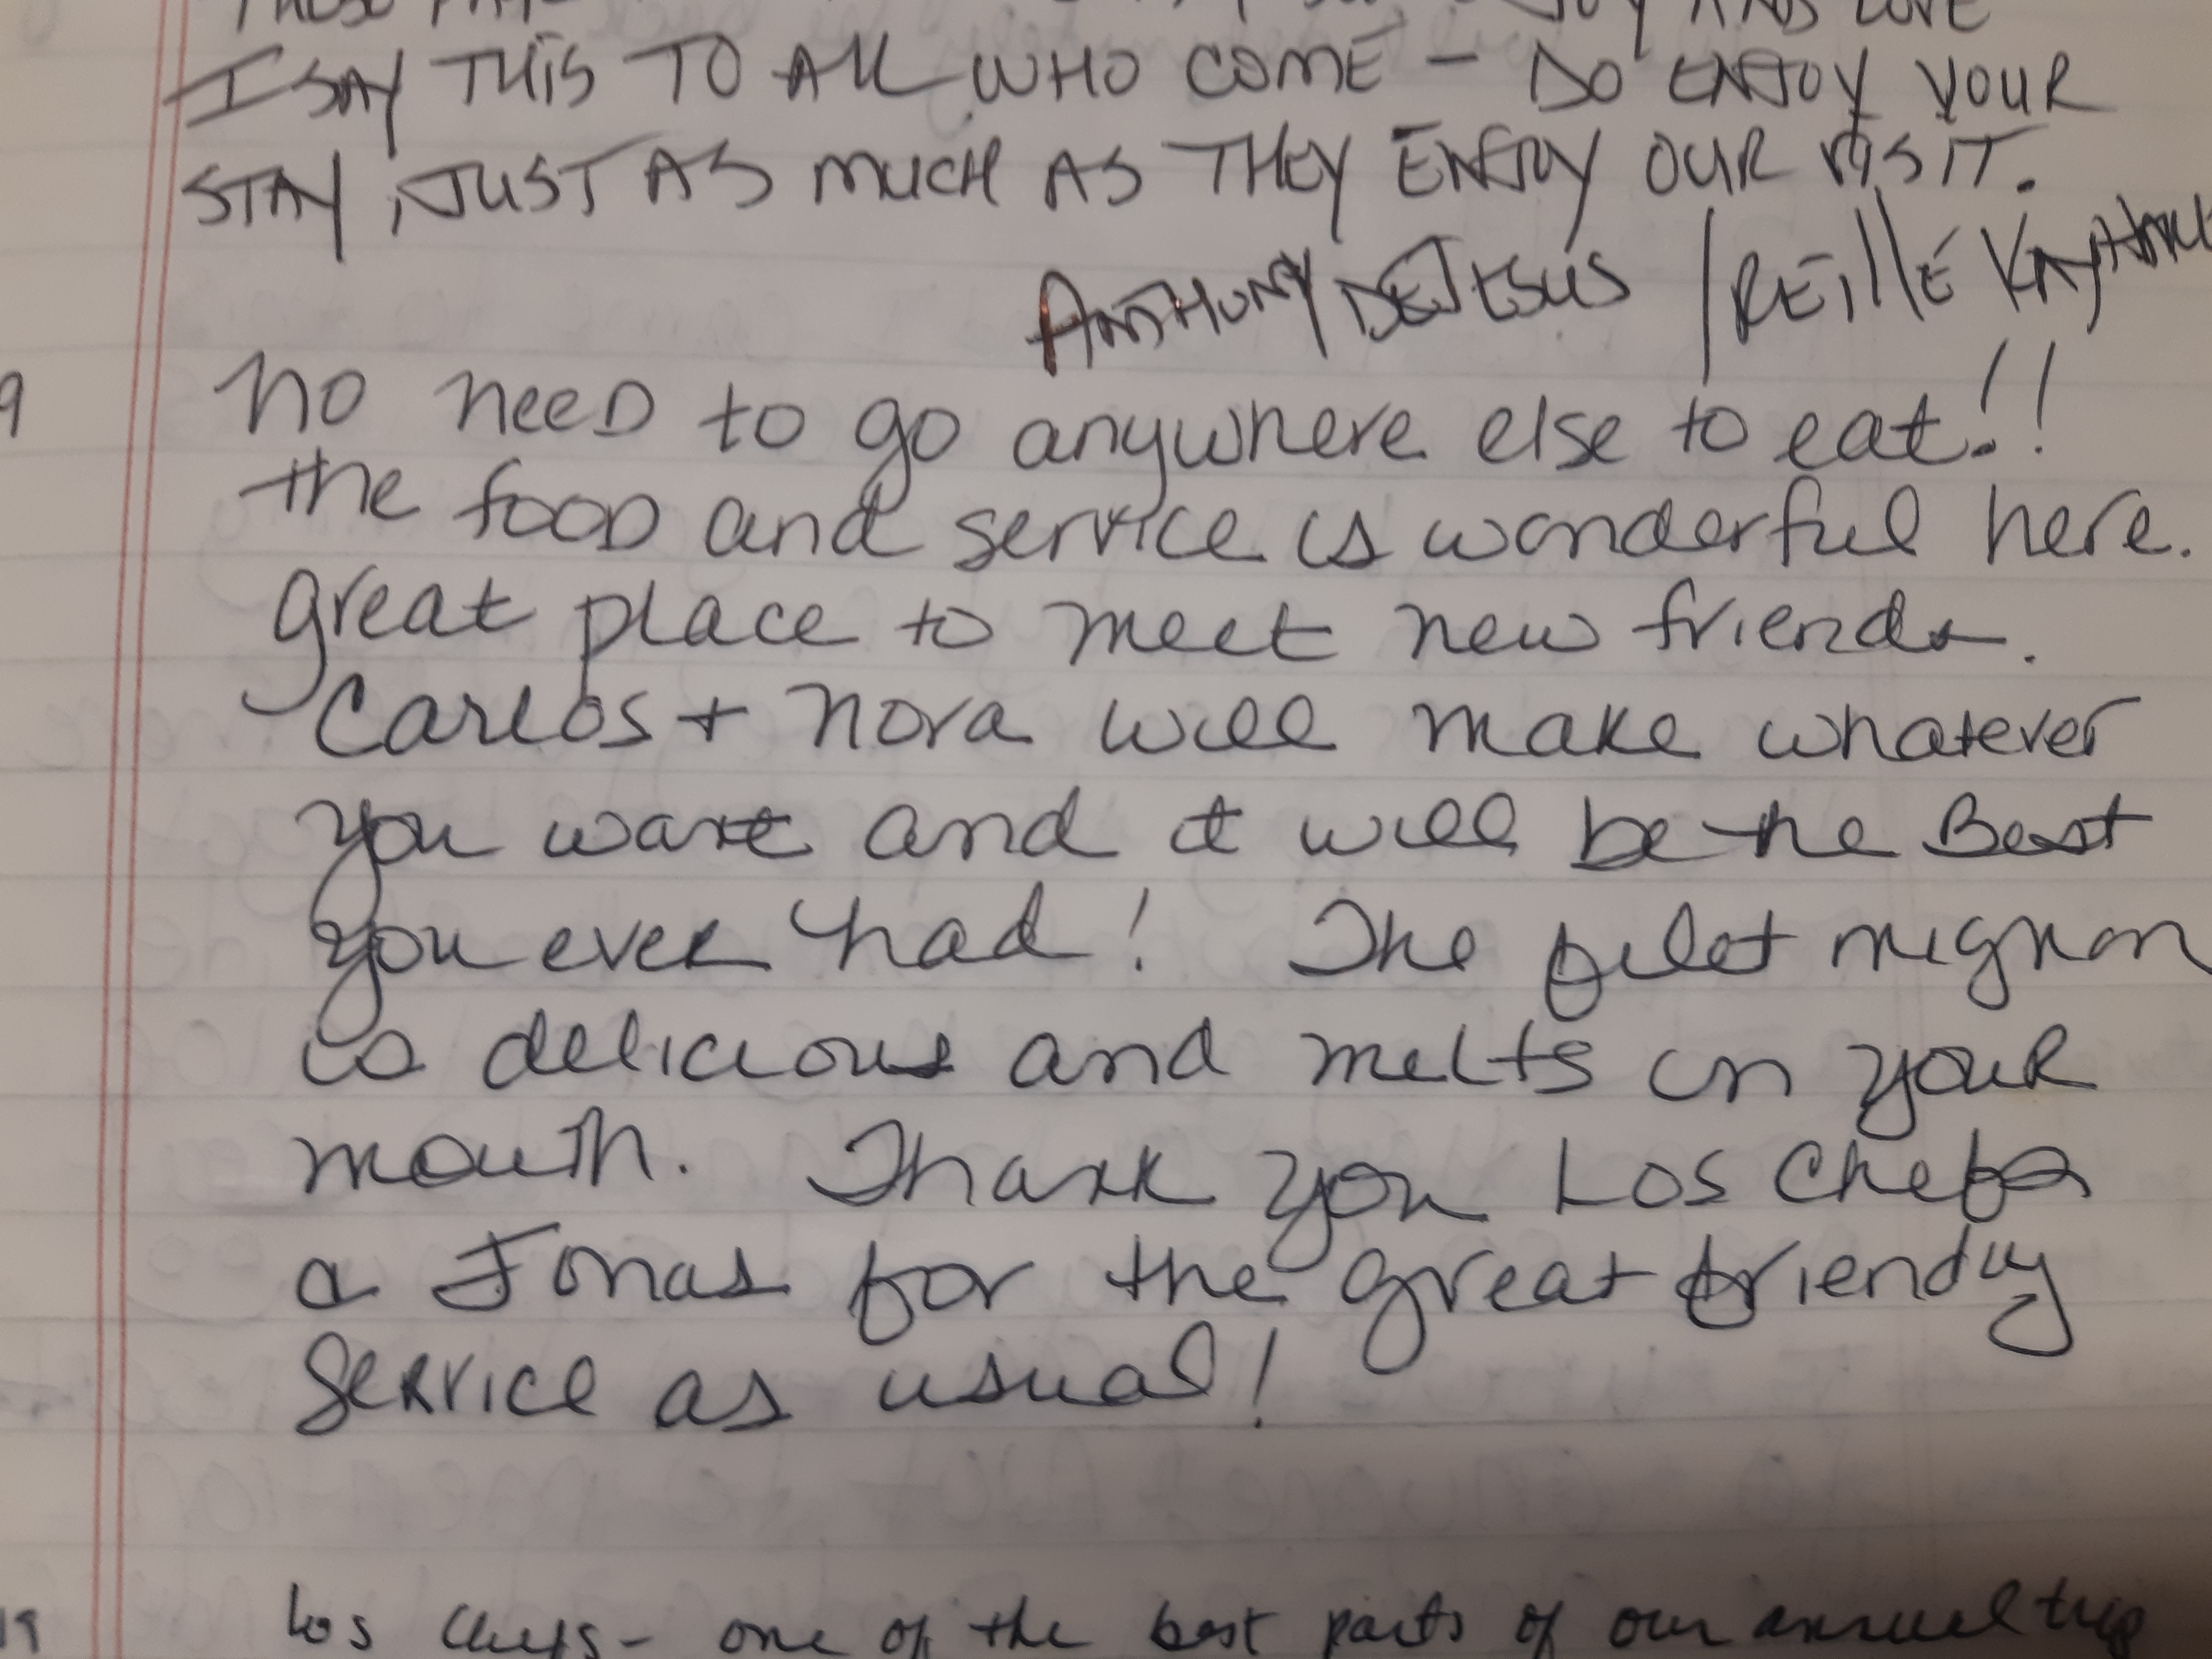 JOY AND LOVE
I SAY THIS TO ALL WHO COME - DO ENJOY YOUR
STAY, JUST AS MUCH AS THEY ENJOY OUR VISIT.
ANTHONY DEJESUS / REILLE
9 No need to go anywhere else to eat!!
the food and service is wonderful here.
great place to meet new friends.
Carlos + Nora will make whatever
you want and it will be the Best
you ever had! The filet mignon
is delicious and melts in your
mouth. Thank you Los Chefs
a Jonas for the great friendly
Service as usual!
19 Los Chefs - one of the best parts of our annual trip